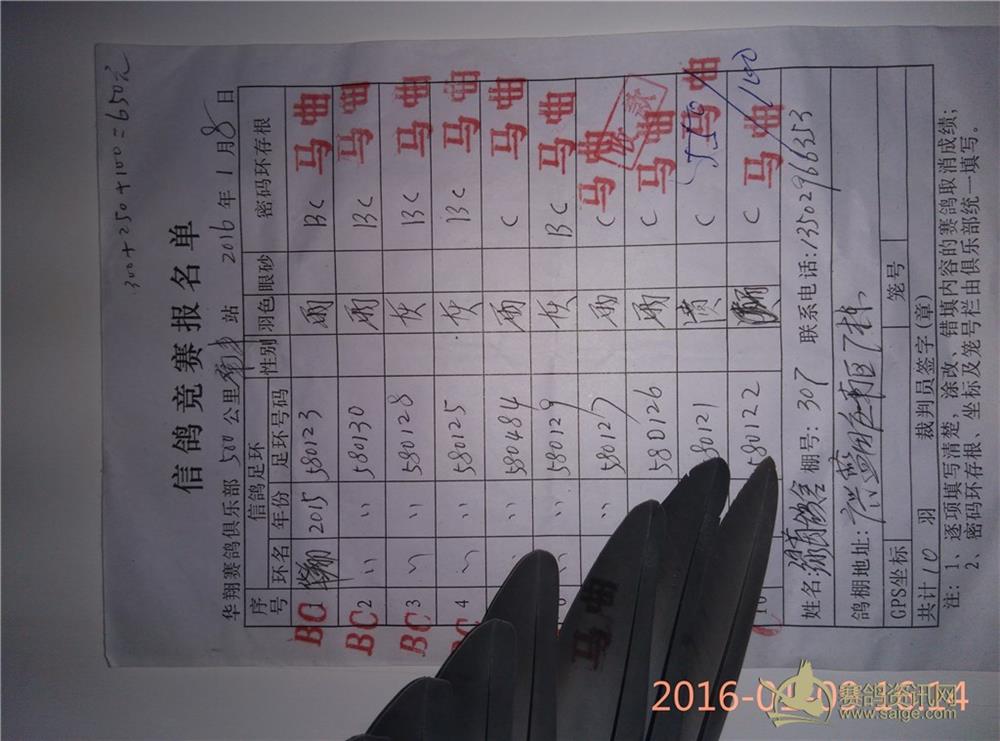 300+250+100=650元
信鸽竞赛报名单
华翔赛鸽俱乐部 500公里 站 2016年1月8日
序号 信鸽足环 性别 羽色 眼砂 密码环存根
环名 年份 足环号码
BC 2015 580123 雨 BC 马曲
BC 2 〃 〃 580130 雨 BC 马曲
BC 3 〃 〃 580128 灰 BC 马曲
BC 4 〃 〃 580125 灰 BC 马曲
〃 580484 雨 C 马曲
6 〃 〃 580129 灰 BC 马曲
580127 雨 C 马曲
580126 雨 C 马曲
580121 C 马曲
10 580122 C 马曲
550/100
马曲
姓名: 棚号:307 联系电话:13502966353
鸽棚地址:
GPS坐标 笼号
共计10羽 裁判员签字(章)
注:1、逐项填写清楚,涂改、错填内容的赛鸽取消成绩;
2、密码环存根、坐标及笼号栏由俱乐部统一填写。
2016-01-09 16:14
赛鸽资讯网
www.saige.com